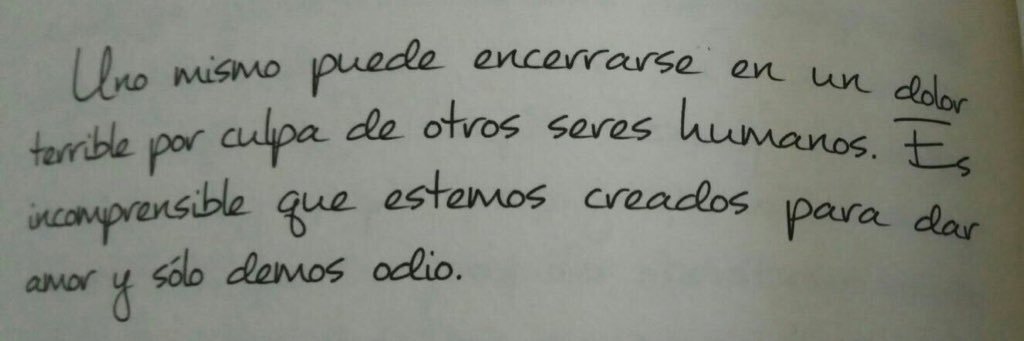 Uno mismo puede encerrarse en un dolor
terrible por culpa de otros seres humanos. Es
incomprensible que estemos creados para dar
amor y sólo demos odio.